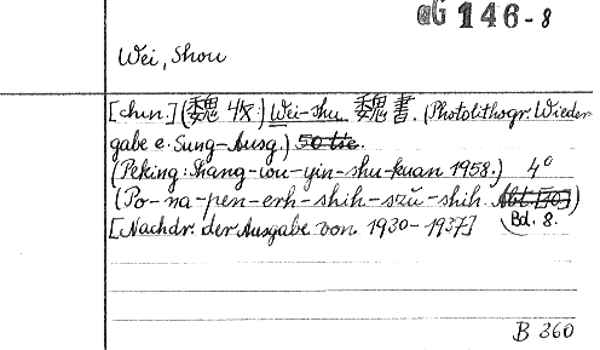 @G 146-8
Wei, Shou
[chin.] (魏 収:) Wei-shu 魏書. (Photolithogr. Wieder-
gabe e. Sung-Ausg.) 50 tse.
(Peking: Shang-wu-yin-shu-kuan 1958.) 4°
(Po-na-pen-erh-shih-szŭ-shih. Bd. 8.)
[Nachdr. der Ausgabe von 1930-1937]
B 360